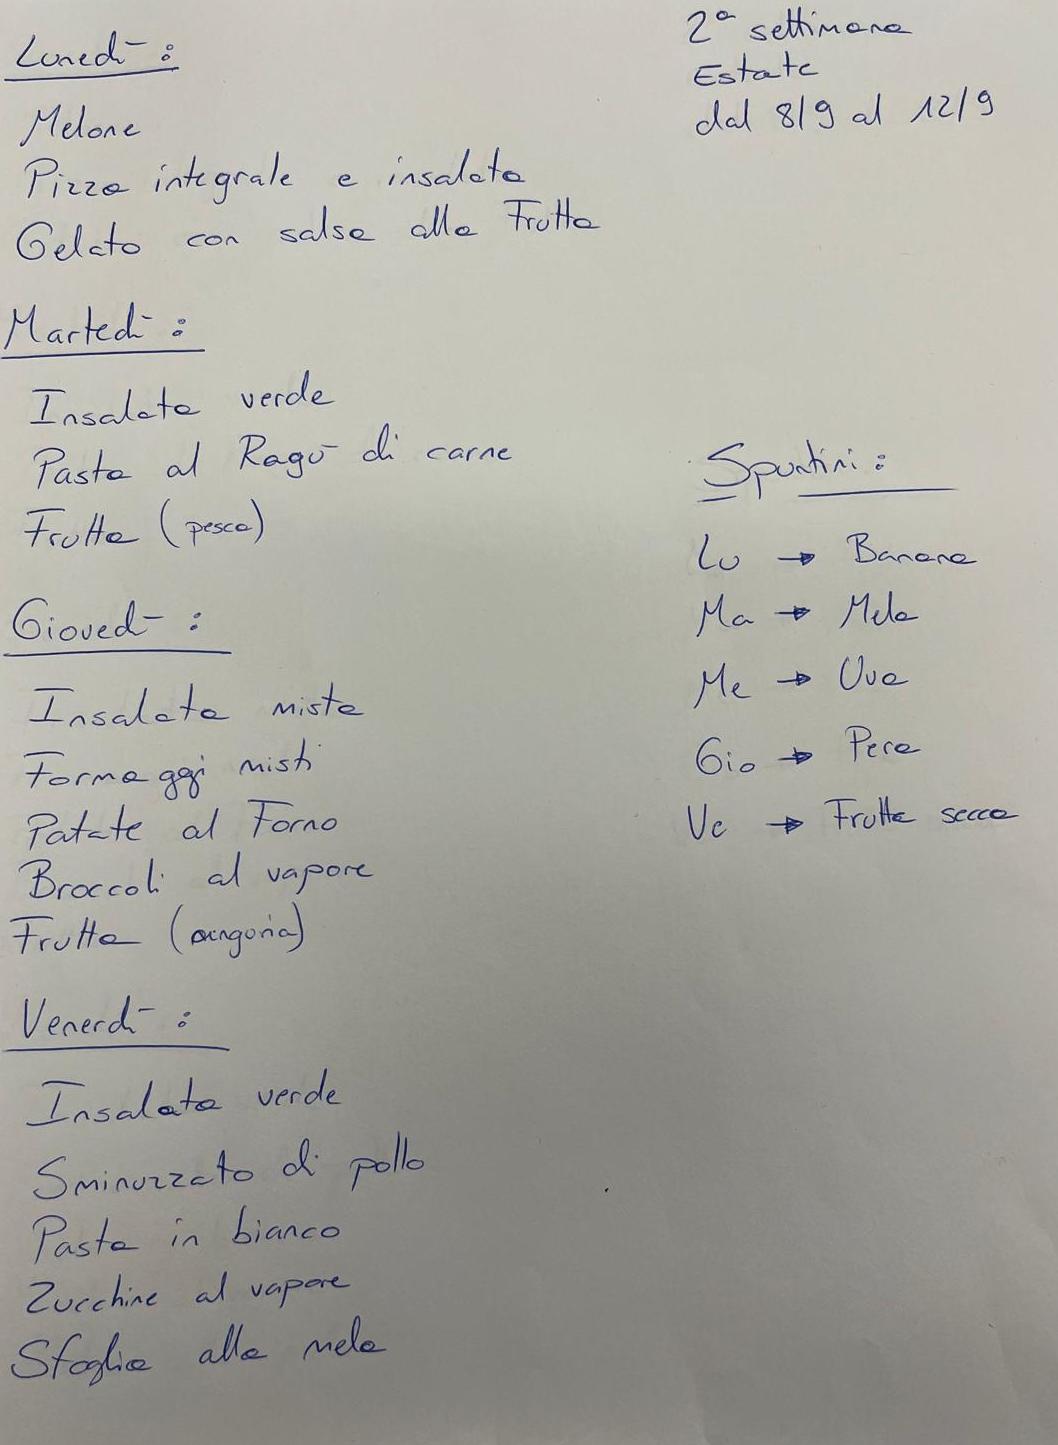 2ª settimana
Estate
dal 8/9 al 12/9
Lunedì:
Melone
Pizza integrale e insalata
Gelato con salsa alla Frutta
Martedì:
Insalata verde
Pasta al Ragù di carne
Frutta (pesca)
Giovedì:
Insalata mista
Formaggi misti
Patate al Forno
Broccoli al vapore
Frutta (anguria)
Venerdì:
Insalata verde
Sminuzzato di pollo
Pasta in bianco
Zucchine al vapore
Sfoglia alla mela
Spuntini:
Lu → Banana
Ma → Mela
Me → Uva
Gio → Pera
Ve → Frutta secca